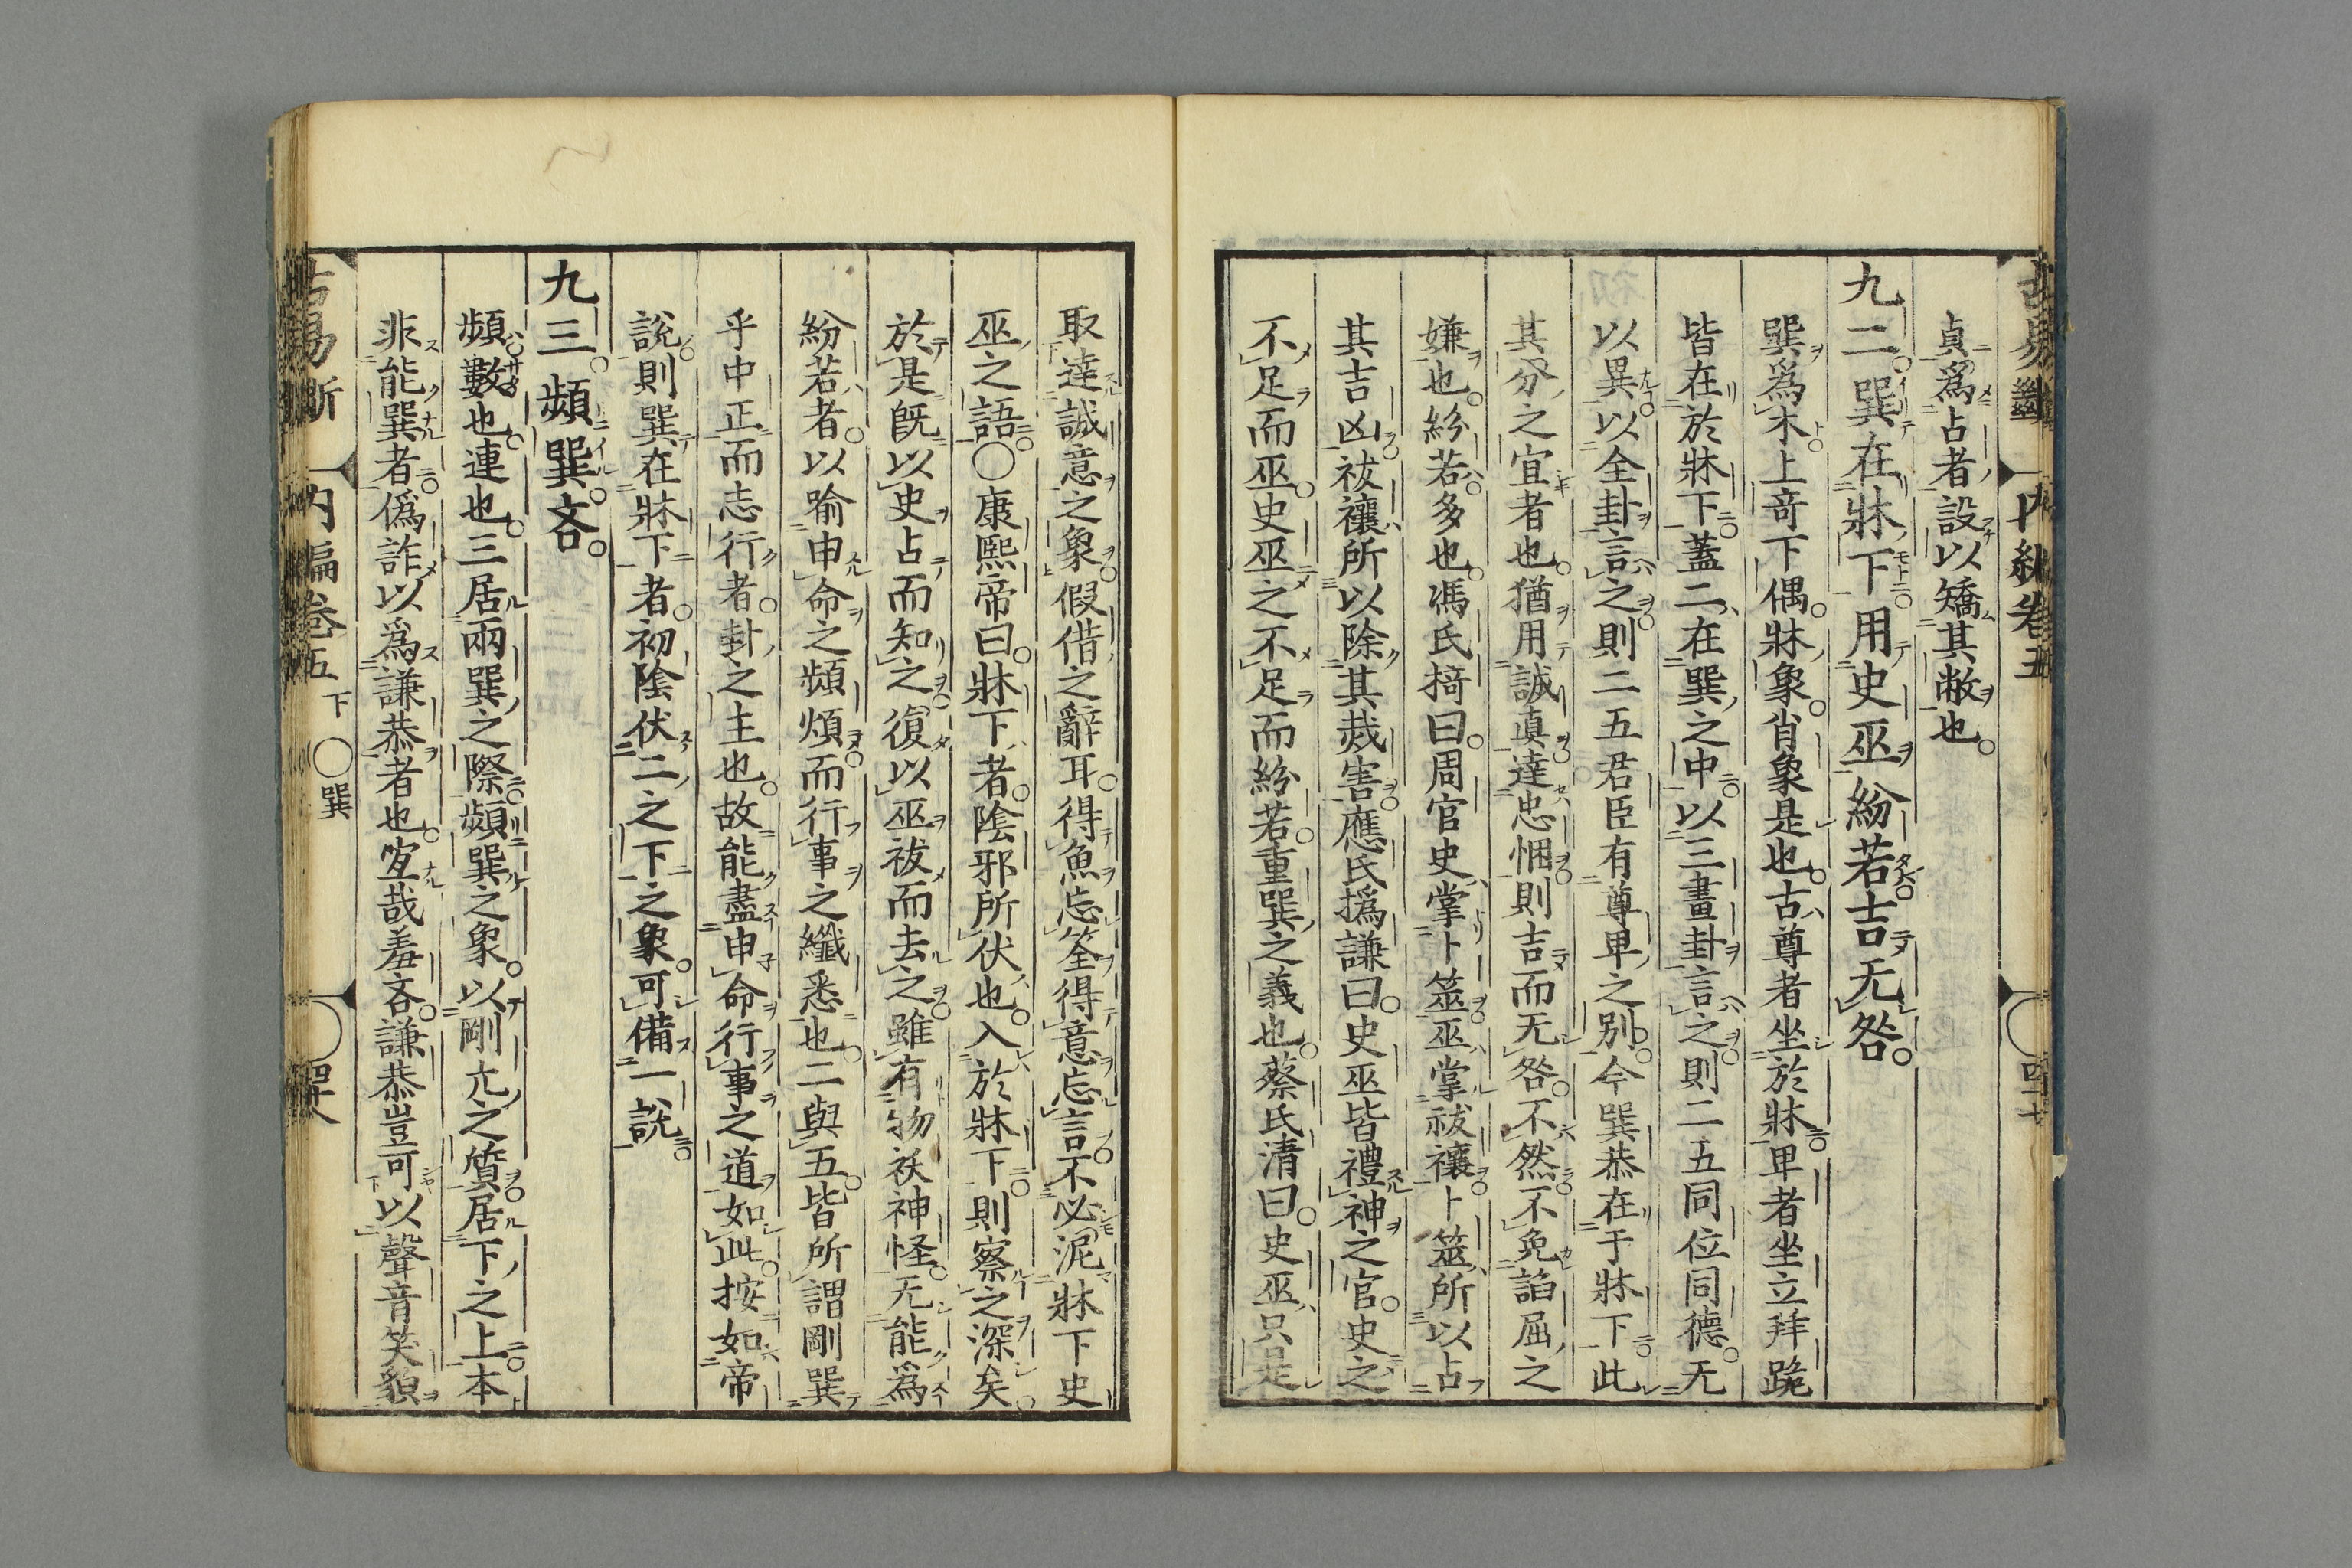 貞爲占者設以矯其敝也
九二巽在牀下用史巫紛若吉无咎
巽爲木上竒下偶牀象肖象是也古尊者坐於牀卑者坐立拜跪
皆在於牀下蓋二在巽之中以三畫卦言之則二五同位同德无
以異以全卦言之則二五君臣有尊卑之別今巽恭在于牀下此
其分之宜者也猶用誠眞達忠悃則吉而无咎不然不免諂屈之
嫌也紛若多也馮氏掎曰周官史掌卜筮巫掌祓禳卜筮所以占
其吉凶祓禳所以除其烖害應氏撝謙曰史巫皆禮神之官史之
不足而巫史巫之不足而紛若重巽之義也蔡氏清曰史巫只是
取達誠意之象假借之辭耳得魚忘筌得意忘言不必泥牀下史
巫之語○康熙帝曰牀下者陰邪所伏也入於牀下則察之深矣
於是旣以史占而知之復以巫祓而去之雖有物祅神怪无能爲
紛若者以喻申命之頻煩而行事之纖悉也二與五皆所謂剛巽
乎中正而志行者卦之主也故能盡申命行事之道如此按如帝
說則巽在牀下者初陰伏二之下之象可備一說
九三頻巽吝
頻數也連也三居兩巽之際頻巽之象以剛亢之質居下之上本
非能巽者僞詐以爲謙恭者也宐哉羞吝謙恭豈可以聲音笑貌
古易斷 内編卷五 下 ○巽